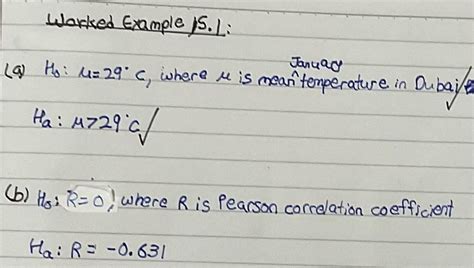 Worked Example 15.1:
(a) H₀: μ=29°C, where μ is mean January temperature in Dubai
Hₐ: μ>29°C
(b) H₀: R=0, where R is Pearson correlation coefficient
Hₐ: R = -0.631